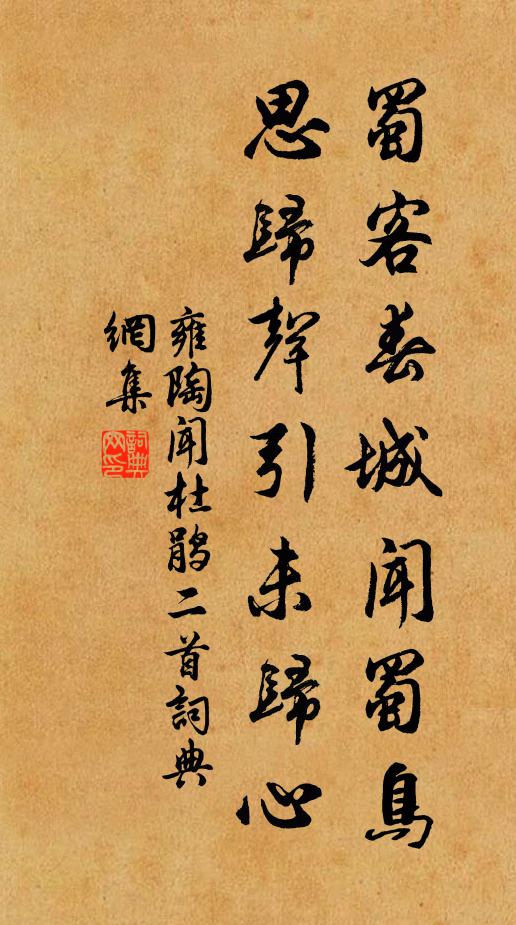 蜀客春城聞蜀鳥
思歸聲引未歸心
雍陶聞杜鵑二首詞典
網集
詞典網印